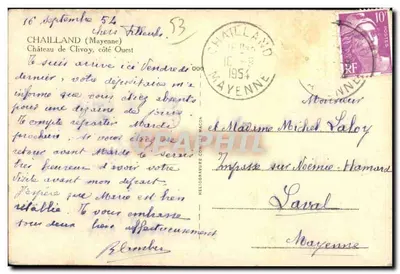 16 Septembre 54
53
Chers Filleuls.
CHAILLAND (Mayenne)
Château de Clivoy, côté Ouest
Je suis arrivé ici Vendredi
dernier, votre dépositaire m'a
informé que vous étiez absents
pour une dizaine de jours.
Je compte repartir Mardi
prochain. Si vous
retour avant Mardi je serais
très heureux d'avoir votre
visite avant mon départ.
J'espère que Marc est bien
rétablie. Je vous embrasse
tous deux bien affectueusement
CHAILLAND
1954
MAYENNE
10F
RF
Monsieur
et Madame Michel Laloy
Impasse sur Noémie-Hamard
Laval
Mayenne